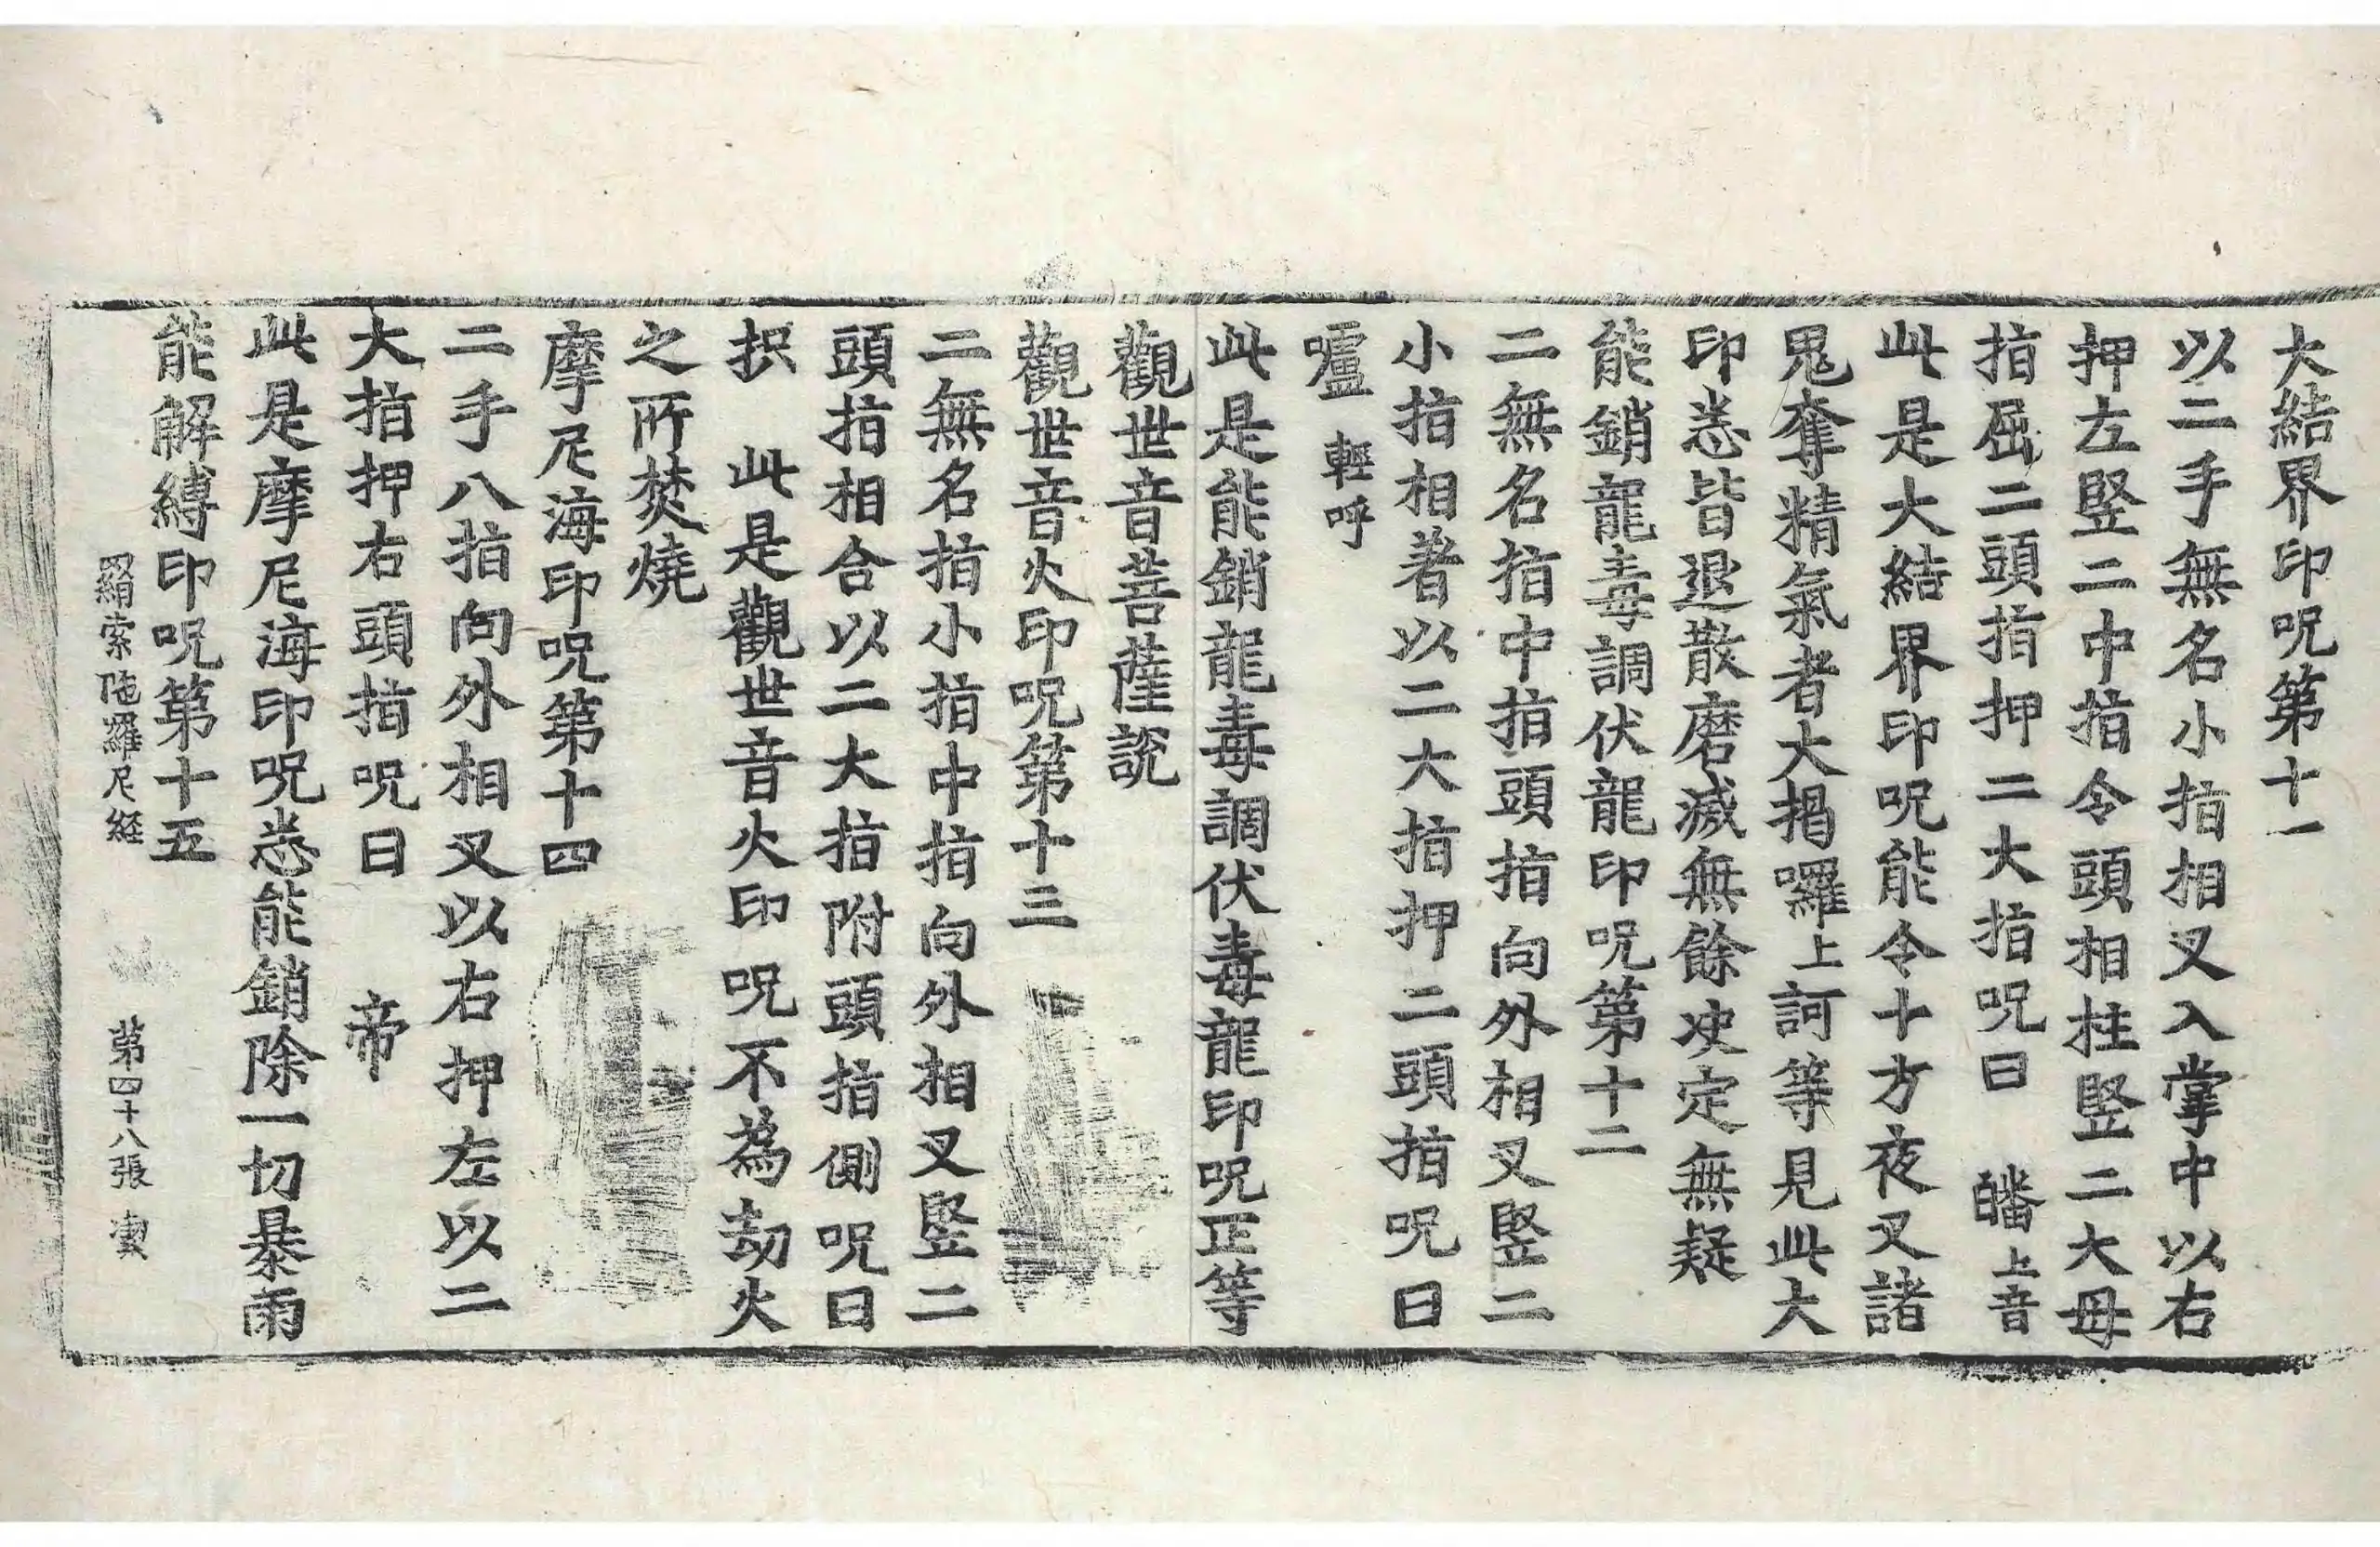 大結界印呪第十一
以二手無名小指相叉入掌中以右
押左竪二中指令頭相拄竪二大母
指屈二頭指押二大指呪曰　皤上音
此是大結界印呪能令十方夜叉諸
鬼奪精氣者大揭囉上訶等見此大
印悉皆退散磨滅無餘决定無疑
能銷龍毒調伏龍印呪第十二
二無名指中指頭指向外相叉竪二
小指相著以二大指押二頭指呪曰
嚧輕呼
此是能銷龍毒調伏毒龍印呪正等
觀世音菩薩說
觀世音火印呪第十三
二無名指小指中指向外相叉竪二
頭指相合以二大指附頭指側呪曰
抧　此是觀世音火印呪不為劫火
之所焚燒
摩尼海印呪第十四
二手八指向外相叉以右押左以二
大指押右頭指呪曰　帝
此是摩尼海印呪悉能銷除一切暴雨
能解縛印呪第十五
羂索陁羅尼經　第四十八張